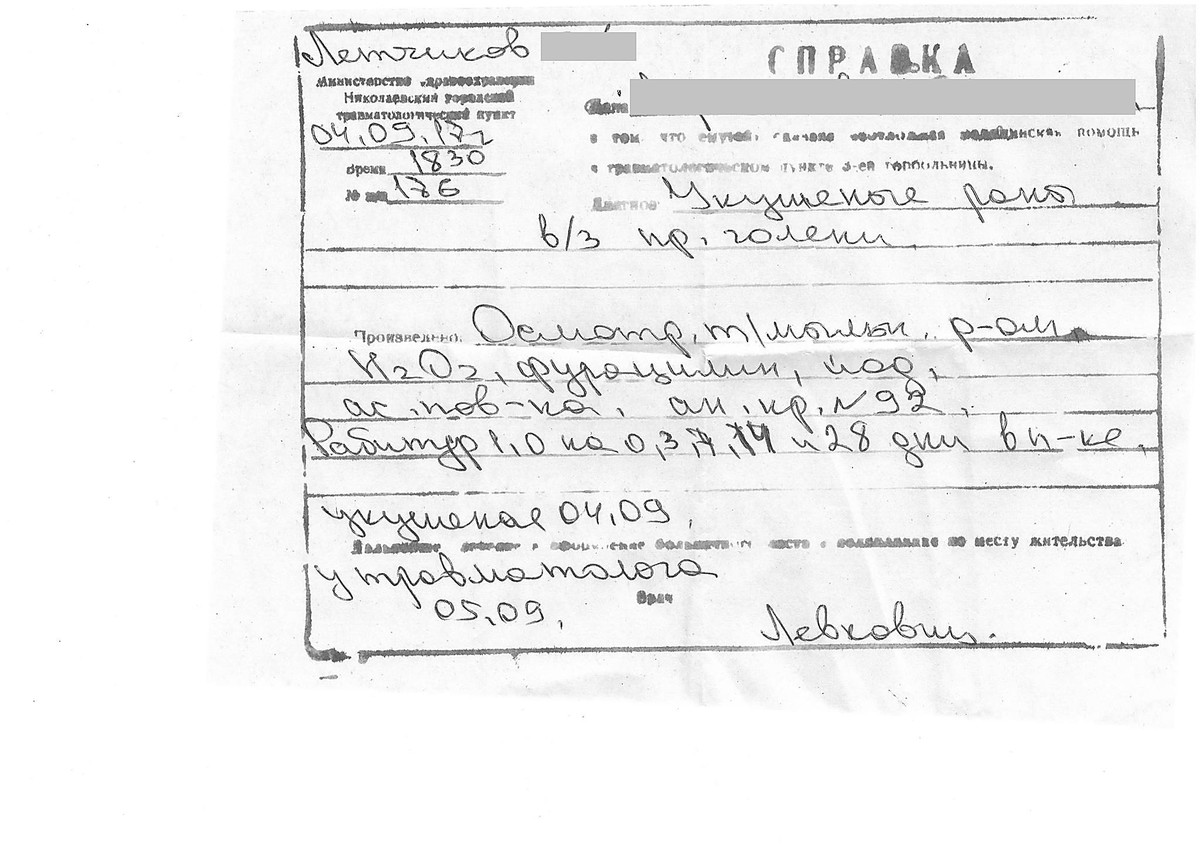 Летчиков
СПРАВКА
Министерство здравоохранения
Николаевский городской
травматологический пункт
Дана
04,09,17г
в том, что ему(ей) оказана неотложная медицинская помощь
Время 1830
в травматологическом пункте 3-ей горбольницы.
№ 176
Диагноз Укушеные раны
в/з пр. голени
Произведено: Осмотр, т/мыльн. р-ом,
H2O2, фурацилин, йод,
ас. пов-ка. ан. кр. №92,
Рабипур 1,0 на 0,3,7,14 и 28 дни в п-ке,
укушеная 04,09,
Дальнейшее лечение и оформление больничного листа в поликлинике по месту жительства
у травматолога
05,09,
Врач
Левкович.